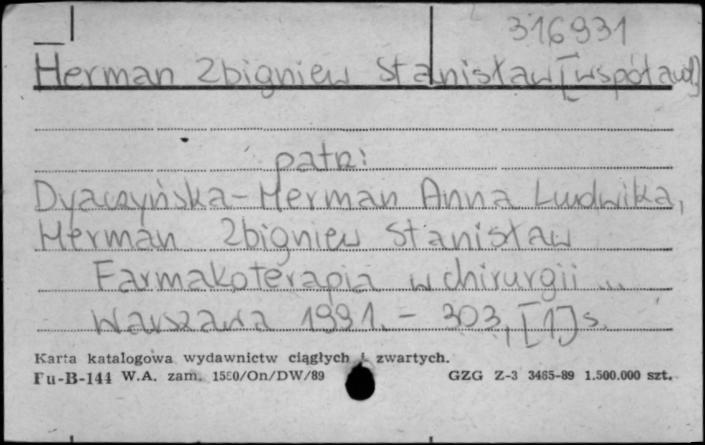 316931
Herman Zbigniew Stanisław [współaut]
patrz:
Dyaczyńska-Herman Anna Ludwika,
Herman Zbigniew Stanisław
Farmakoterapia w chirurgii ...
Warszawa 1991. - 303, [1] s.
Karta katalogowa wydawnictw ciągłych i zwartych.
Fu-B-144 W.A. zam. 1550/On/DW/89 GZG Z-3 3465-89 1.500.000 szt.